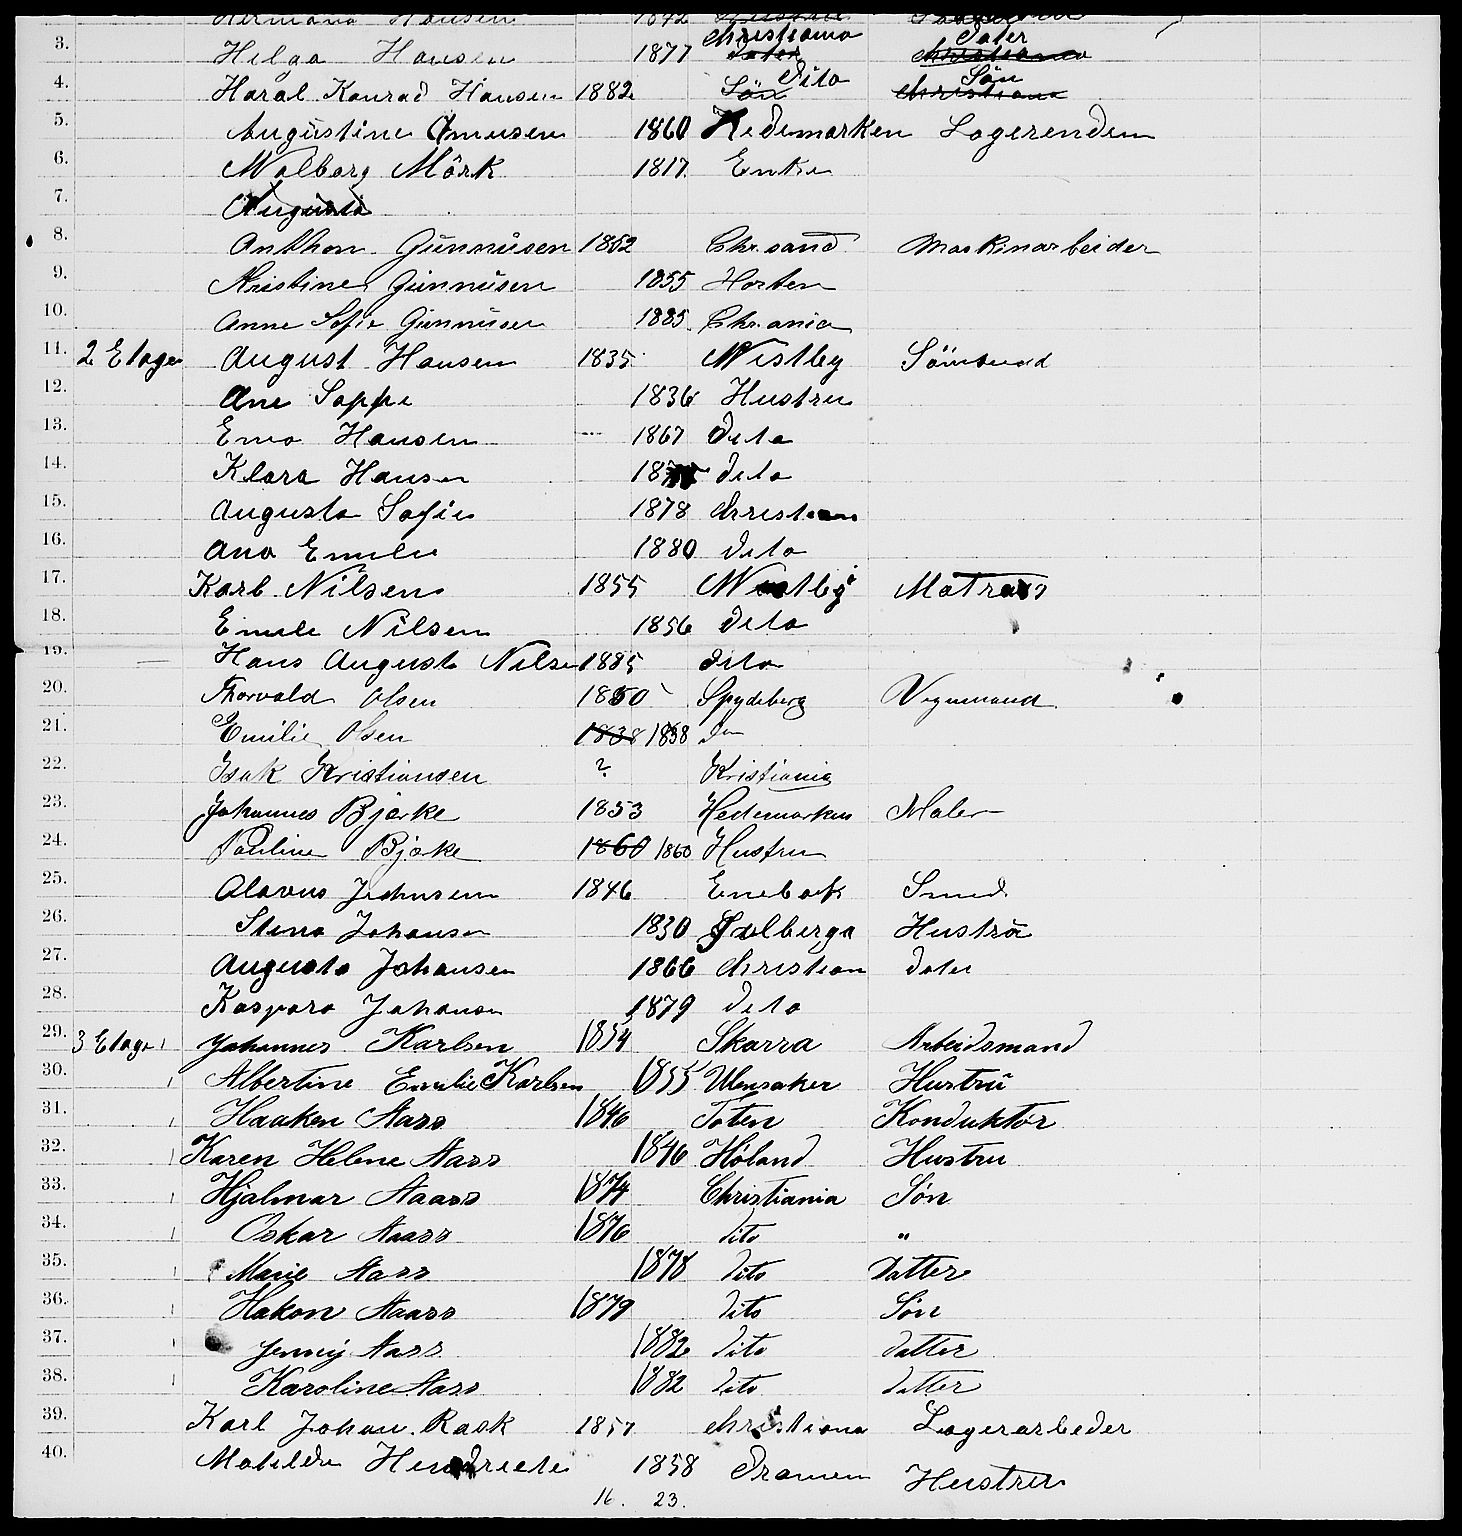 Hermana Hansen 1842
3. Helga Hansen 1877 Christiania Dater
4. Haral Konrad Hansen 1882 Sön Dito Sön Christiana
5. Augustine Amusen 1860 Hedemarken Logerenden
6. Walborg Mörk 1817. Enke
7. Augusta
8. Anthon Gunnüsen 1852 Chr.sand Maskinarbeider
9. Kristine Gunnüsen 1855 Horten
10. Anne Sofie Gunnüsen 1885. Chr.ania
11. 2 Etage August Hansen 1835 Westby
12. Ane Soppe 1836 Hustru
13. Ema Hansen 1867 Dito
14. Klara Hansen Dito
15. Augusta Sofie 1878 Christian
16. Ana Emelie 1880 Dito
17. Karl Nilsen 1855 Westby Matros
18. Emele Nilsen 1856 Dito
19. Hans August Nilsen 1885 Dito
20. Thorvald Olsen 1850 Spydeberg Vognmand
21. Emilie Olsen 1838 1858 Do
22. Isak Kristiansen ? Kristiania
23. Johannes Bjerke 1853 Hedemarken Maler
24. Pauline Bjeke 1860 1860 Hustru
25. Olavus Johnsen 1846 Enebak Smed
26. Stina Johansen 1830 Hustrü
27. Augusta Johansen 1866 Christian Dater
28. Kaspara Johansen 1879 Dito
29. 3 Etage Johannes Karlsen 1854 Skarra Arbeidsmand
30. Albertine Emilie Karlsen 1855 Ulensaker Hustrü
31. Haaken Aass 1846 Toten Konduktør
32. Karen Helene Aass 1846 Høland Hustru
33. Hjalmar Aaass 1874 Christiania Søn
34. Oskar Aaass 1876 Dito "
35. Marie Aass 1878 Dito Datter
36. Hakon Aaass 1879 Dito Søn
37. Jenny Aass 1882 Dito Datter
38. Karoline Aass 1882 Dito Datter
39. Karl Johan Rask 1857 Christiana Lagerarbeder
40. Matilde 1858 Dramen Hustru
16. 23.